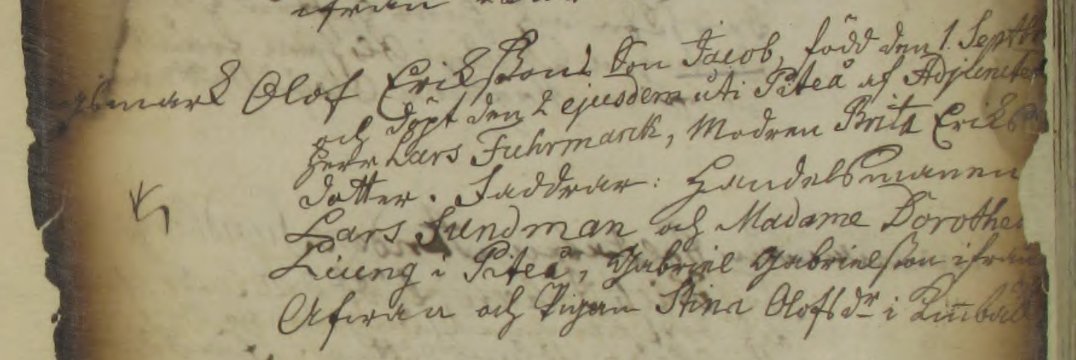 ifrån
Olof Erikssons Son Jacob, född den 1. Septbr
och döpt den 2 ejusdem uti Piteå af Adjuncten
Herr Lars Fuhrmarck, Modren Brita Eriks
dotter. Faddrar: Handelsmannen
Lars Sundman och Madame Dorothea
Liung i Piteå, Gabriel Gabrielsson ifrån
och Pigan Stina Olofsdr i